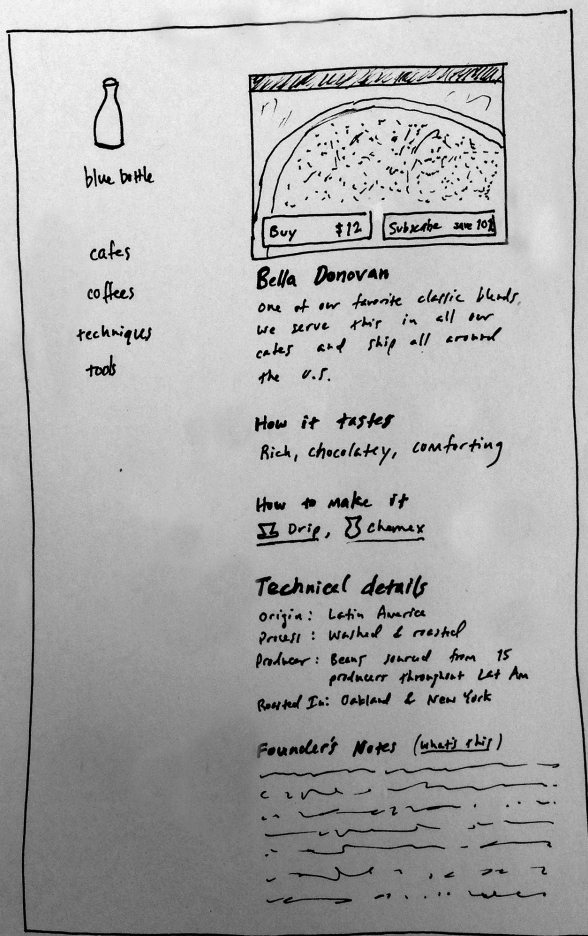 blue bottle
cafes
coffees
techniques
tools
Buy $12
Subscribe save 10%
Bella Donovan
One of our favorite classic blends,
we serve this in all our
cafes and ship all around
the U.S.
How it tastes
Rich, chocolatey, comforting
How to make it
Drip, Chemex
Technical details
Origin: Latin America
Process: Washed & roasted
Producer: Beans sourced from 15
producers throughout Lat Am
Roasted In: Oakland & New York
Founder's Notes (what's this)